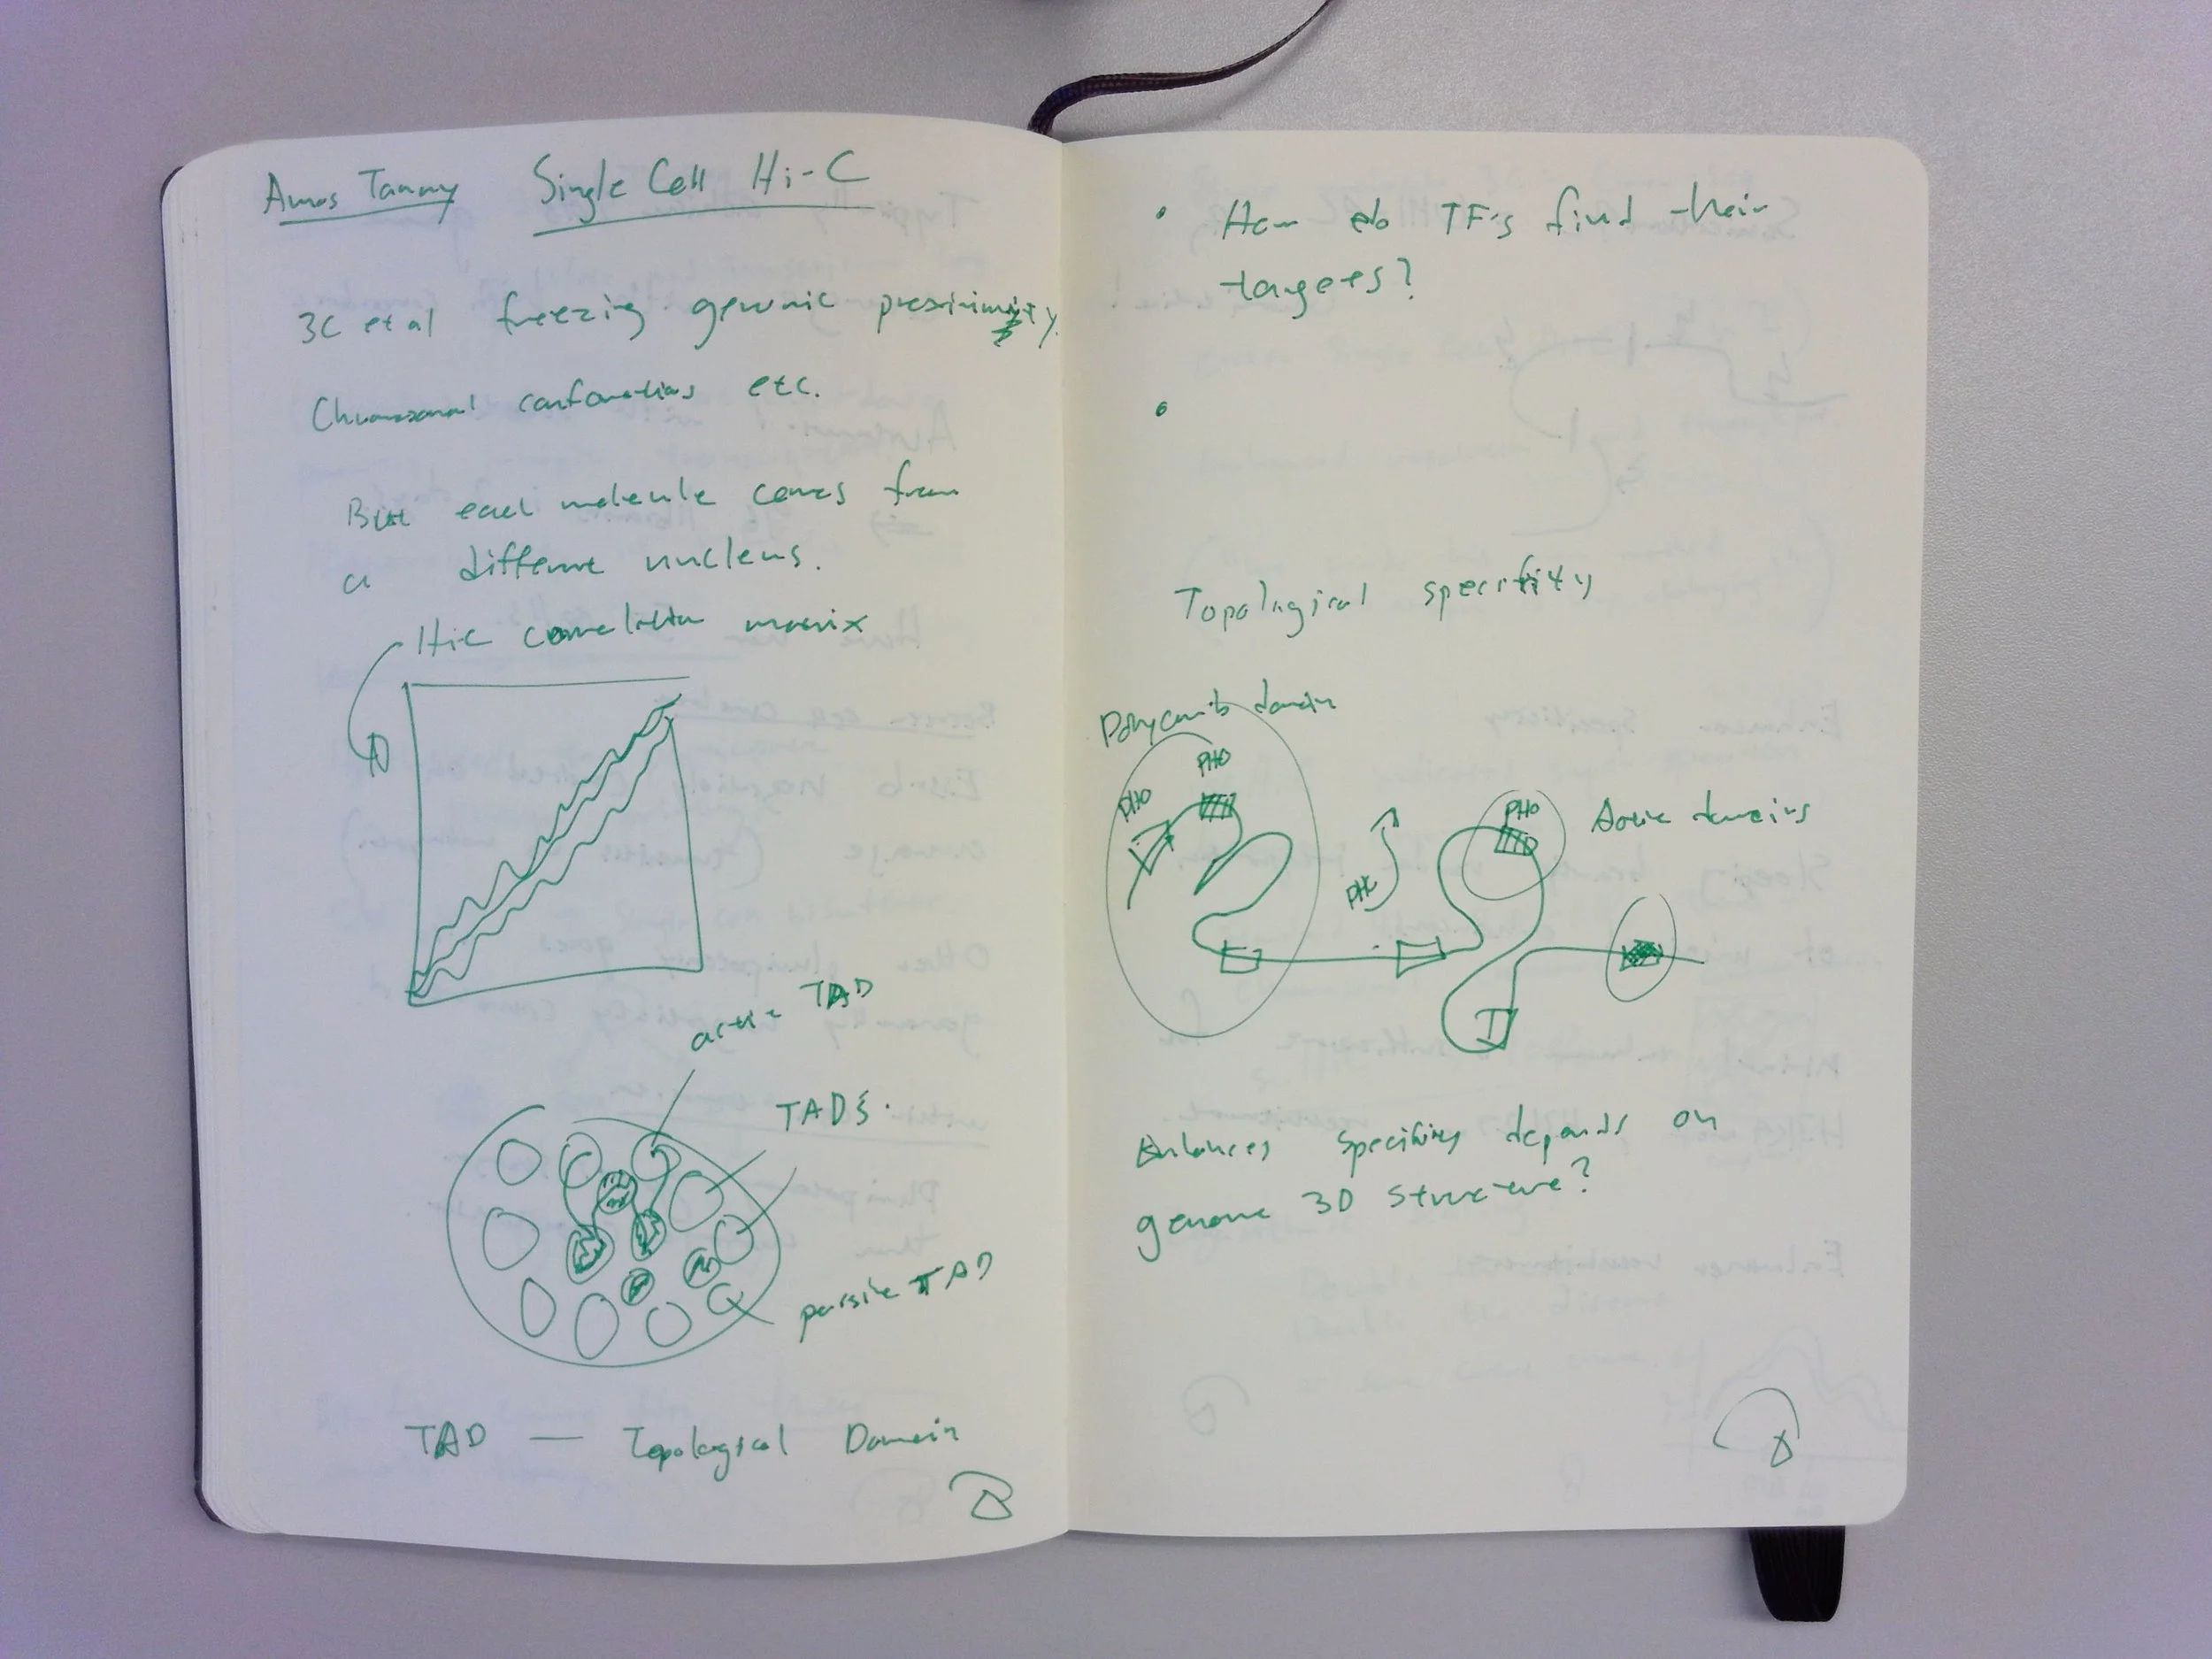 Amos Tanay Single Cell Hi-C
3C et al freezing genomic proximity.
Chromosomal conformations etc.
But each molecule comes from
a different nucleus.
Hic correlation matrix
active TAD
TADS.
passive TAD
TAD — Topological Domain
• How do TF's find their
targets?
•
Topological specifity
Polycomb domain
PHO
PHO
PHO
PHO
Active domains
Enhancer specificity depends on
genome 3D structure?